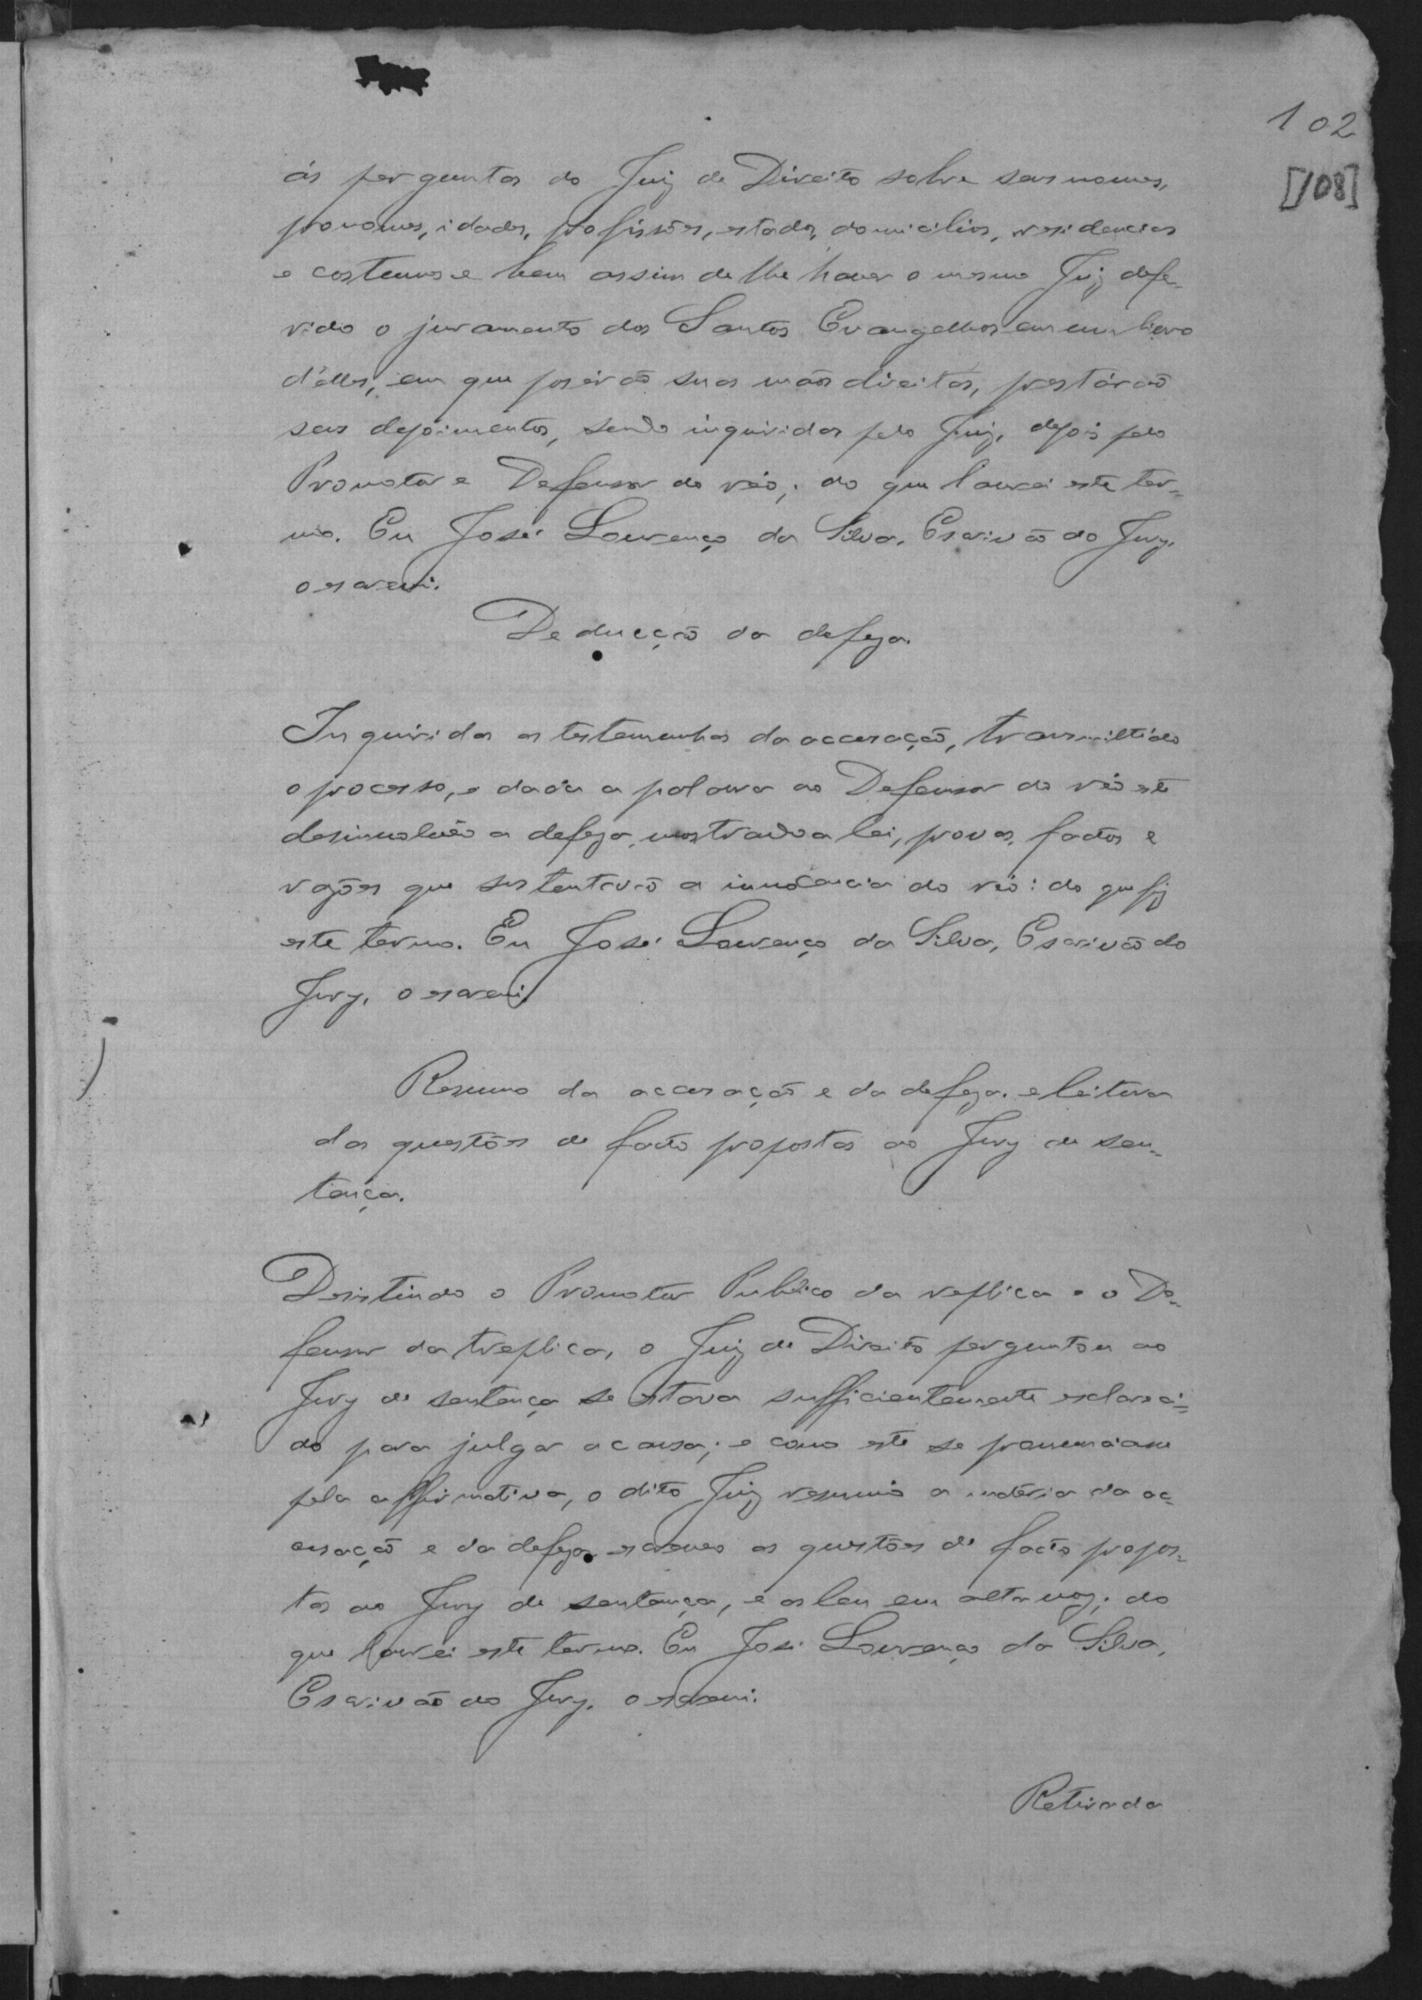 102
[108]
ás perguntas do Juiz de Direito sobre seus nomes,
pronomes, idades, profissões, estados, domicilios, residencias
e costumes e bem assim de lhe haver o mesmo Juiz defe-
rido o juramento dos Santos Evangelhos em um livro
d'elles, em que poserão suas mãos direitas, prestárão
seus depoimentos, sendo inquiridas pelo Juiz, depois pelo
Promotor e Defensor do réo; do que lavrei este ter-
mo. Eu José Lourenço da Silva, Escrivão do Jury,
o escrevi.
Deducção da defeza.
Inquiridas as testemunhas da accusação, transmittido
o processo, e dada a palavra ao Defensor do réo este
desinvolvêo a defeza, mostrando a lei, provas, factos e
razões que sustentavão a innocencia do réo: do que fiz
este termo. Eu José Lourenço da Silva, Escrivão do
Jury, o escrevi.
Resumo da accusação e da defeza, e leitura
das questões de facto propostas ao Jury de sen-
tença.
Desistindo o Promotor Publico da replica e o De-
fensor da treplica, o Juiz de Direito perguntou ao
Jury de sentença se estava sufficientemente esclareci-
do para julgar a causa; e como este se pronunciasse
pela affirmativa, o dito Juiz resumio a materia da ac-
cusação e da defeza, escreveo as questões de facto propos-
tas ao Jury de sentença, e as leu em alta voz; do
que lavrei este termo. Eu José Lourenço da Silva,
Escrivão do Jury, o escrevi.
Retirada